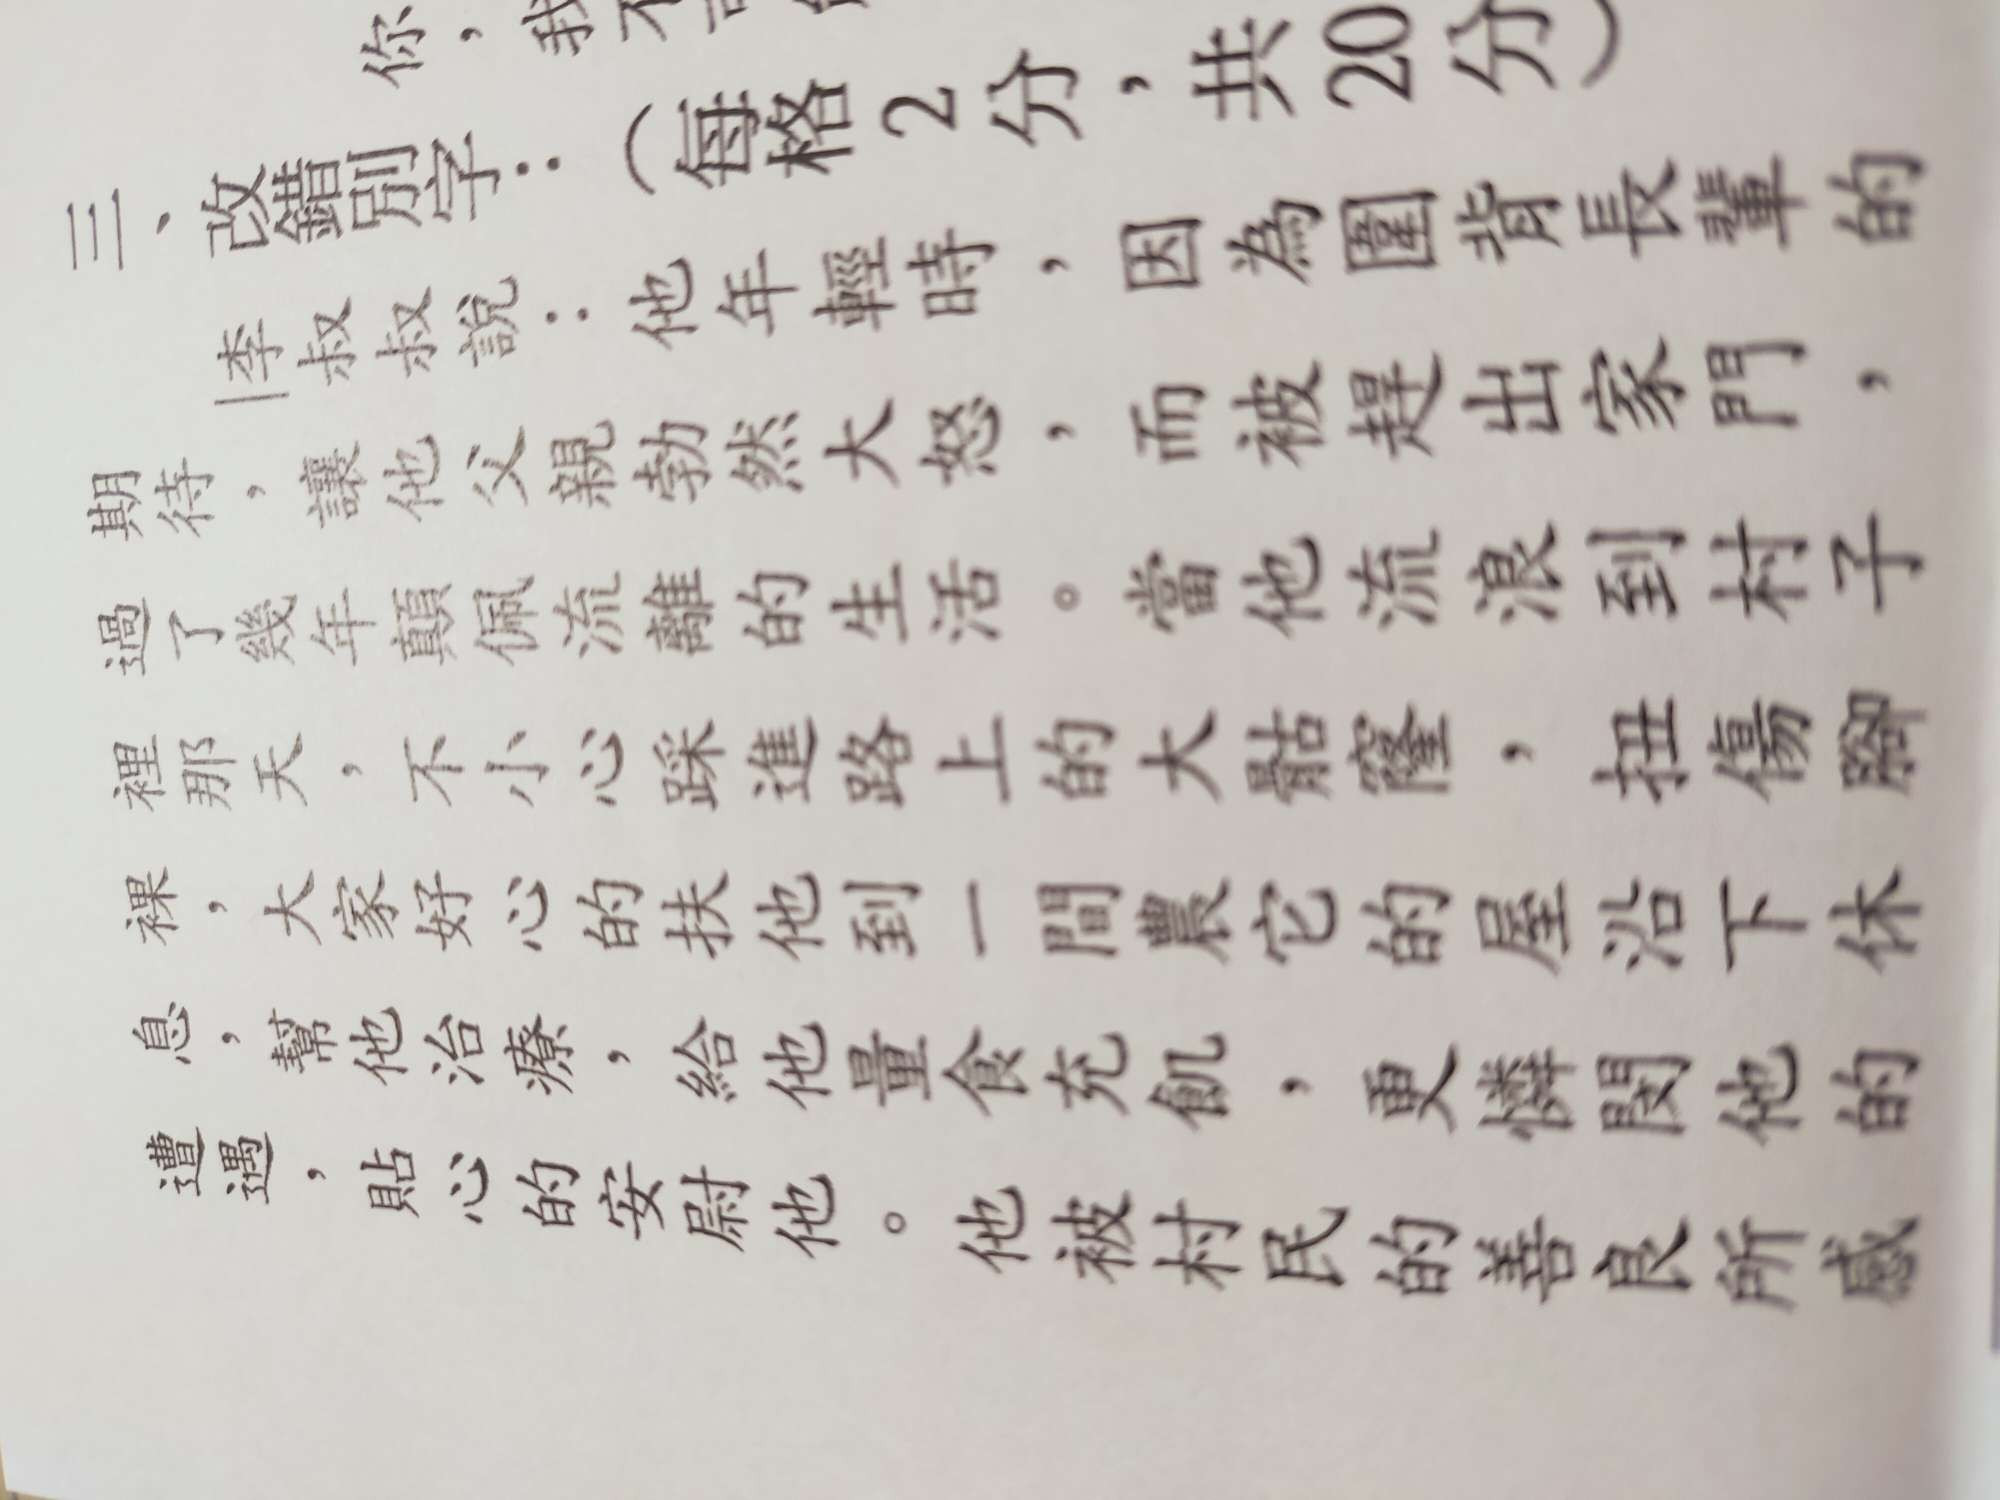 你，我不
三、改錯別字：（每格2分，共20分）
李叔叔說：他年輕時，因為圍背長輩的
期待，讓他父親勃然大怒，而被趕出家門，
過了幾年顛佩流離的生活。當他流浪到村子
裡那天，不小心踩進路上的大骷窿，扭傷腳
裸，大家好心的扶他到一間農它的屋沿下休
息，幫他治療，給他量食充飢，更憐閔他的
遭遇，貼心的安尉他。他被村民的善良所感